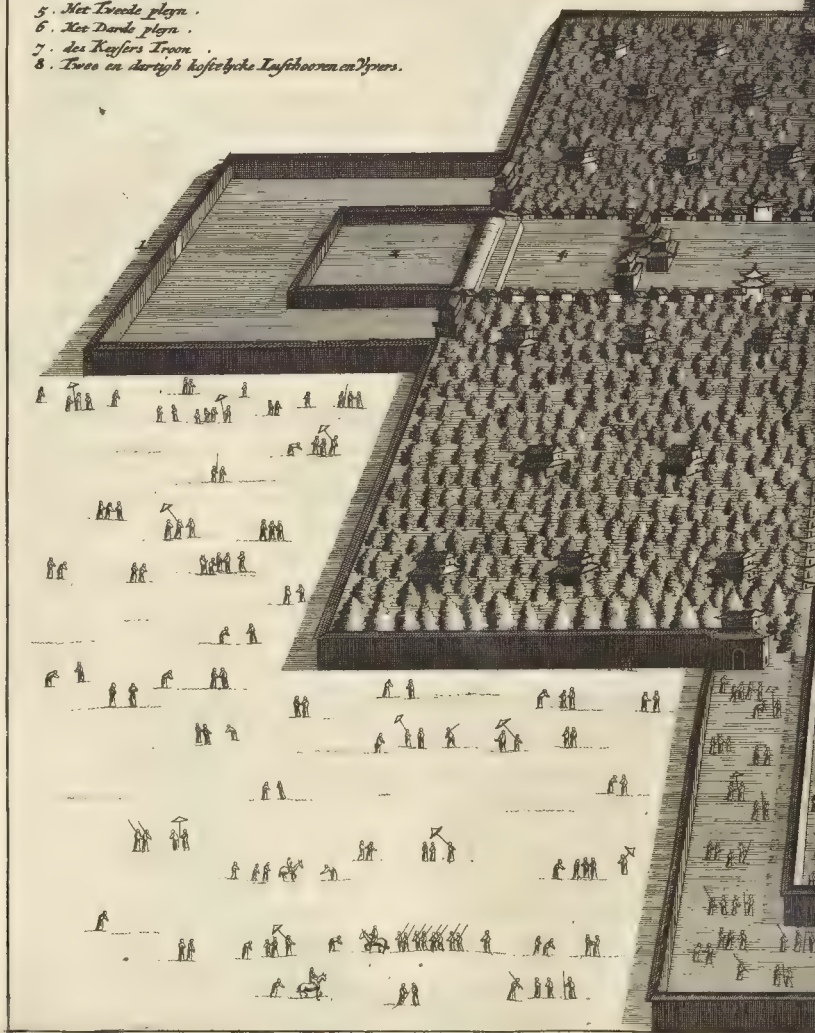 5. Het Tweede pleyn.
6. Het Darde pleyn.
7. des Keysers Troon.
8. Twee en dartigh kostelycke Lusthooven en Vyvers.
1
4